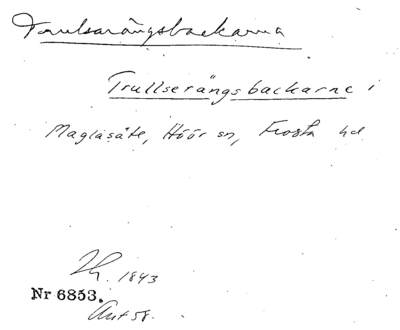 Trulsarängsbackarna
Trullserängsbackarne i
Maglasäte, Höör sn, Frosta hd
1843
Nr 6853.
Ant 58.